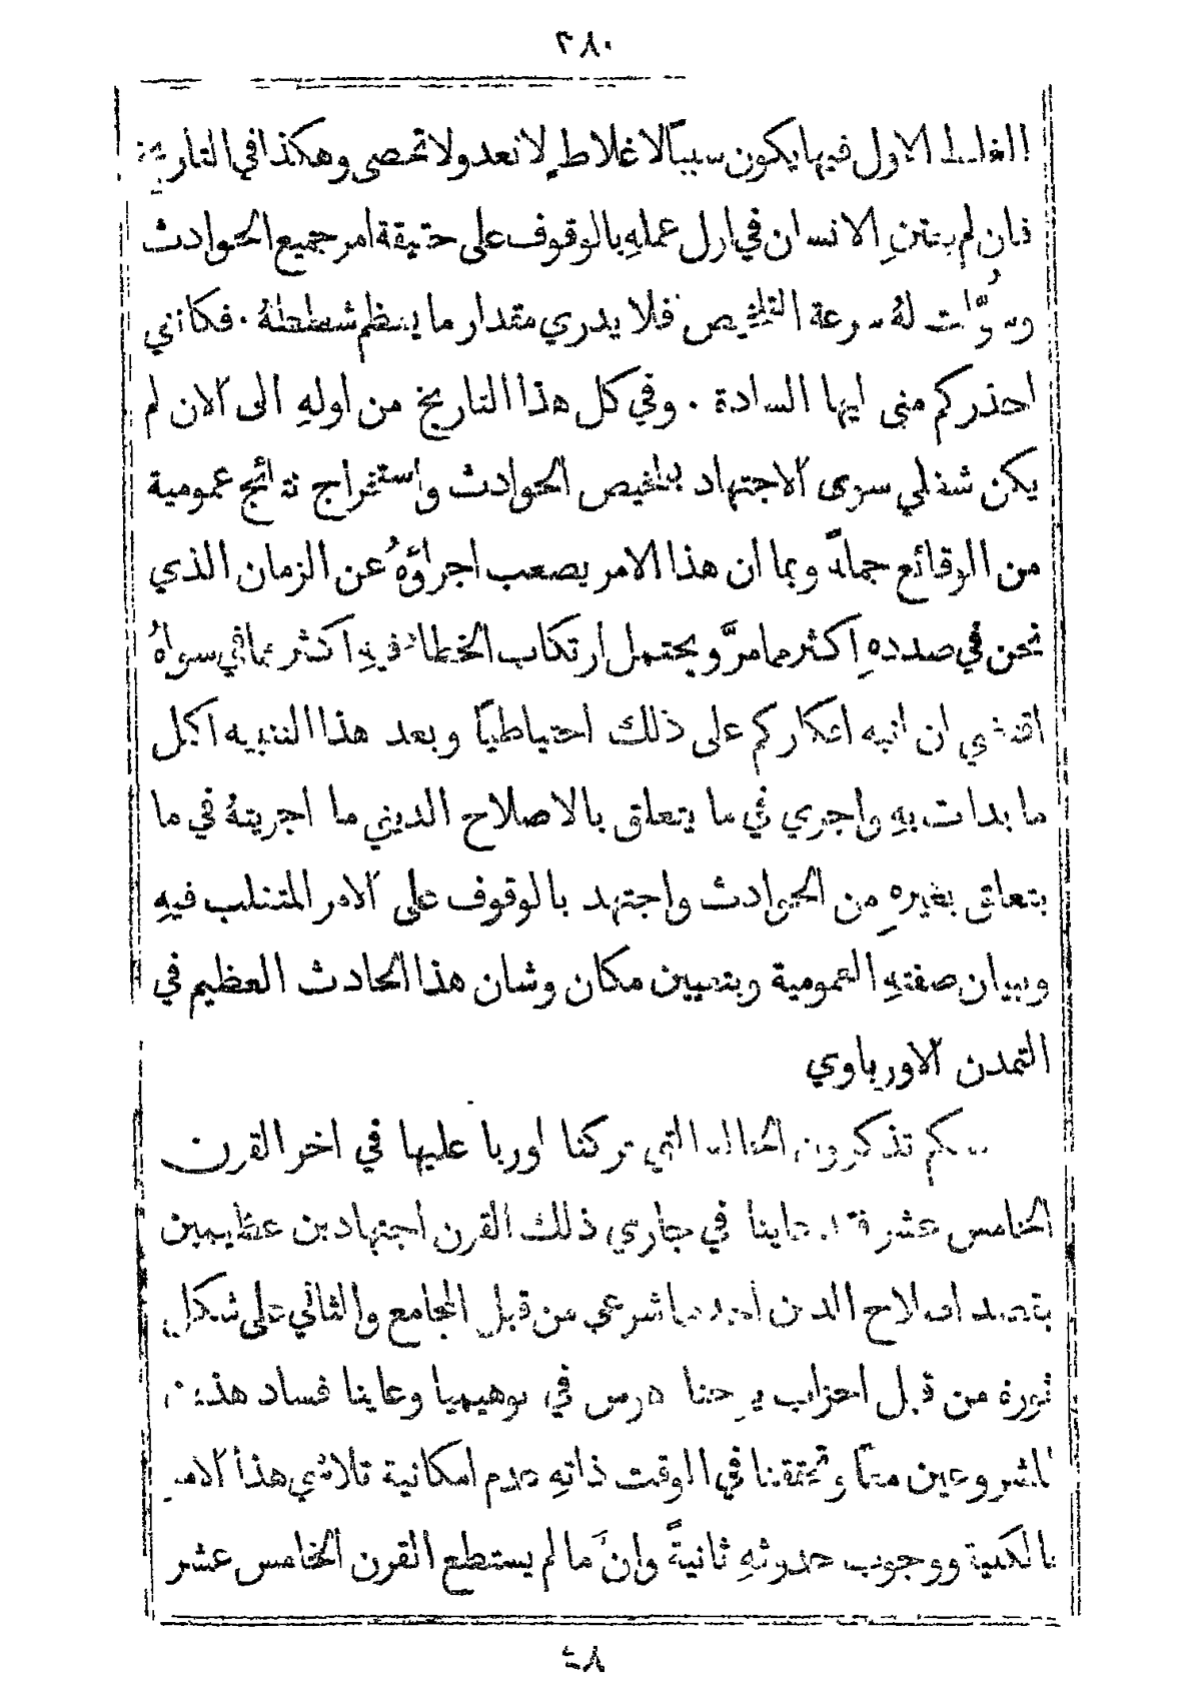 ٢٨٠
الغلط الاول فيها يكون سبباً لاغلاطٍ لا تعد ولا تحصى وهكذا في التاريخ
فان لم يعتنِ الانسان في اول عملهِ بالوقوف على حقيقة امر جميع الحوادث
وسوَّلت لهُ سرعة التلخيص فلا يدري مقدار ما يعظم شططهُ . فكانني
احذركم مني ايها السادة . وفي كل هذا التاريخ من اولهِ الى الان لم
يكن شغلي سوى الاجتهاد بتلخيص الحوادث واستخراج نتائج عمومية
من الوقائع جملةً وبما ان هذا الامر يصعب اجراؤهُ عن الزمان الذي
نحن في صددهِ اكثر مما مرَّ ويحتمل ارتكاب الخطاء فيهِ اكثر مما في سواهُ
اقتضى ان انبه افكاركم على ذلك احتياطياً وبعد هذا التنبيه اكمل
ما بدات بهِ واجري في ما يتعلق بالاصلاح الديني ما اجريتهُ في ما
يتعلق بغيرهِ من الحوادث واجتهد بالوقوف على الامر المتغلب فيهِ
وبيان صفتهِ العمومية وبتعيين مكان وشان هذا الحادث العظيم في
التمدن الاورباوي
تذكرون الحالة التي تركنا اوربا عليها في اخر القرن
الخامس عشر فقد عاينا في جاري ذلك القرن اجتهادين عظيمين
بقصد اصلاح الدين احدهما شرعي من قبل المجامع والثاني على شكل
ثورة من قبل احزاب يوحنا هوس في بوهيميا وعاينا فساد هذين
المشروعين معاً وتحققنا في الوقت ذاتهِ عدم امكانية تلاشي هذا الامر
بالكلية ووجوب حدوثهِ ثانيةً وانَّ ما لم يستطع القرن الخامس عشر